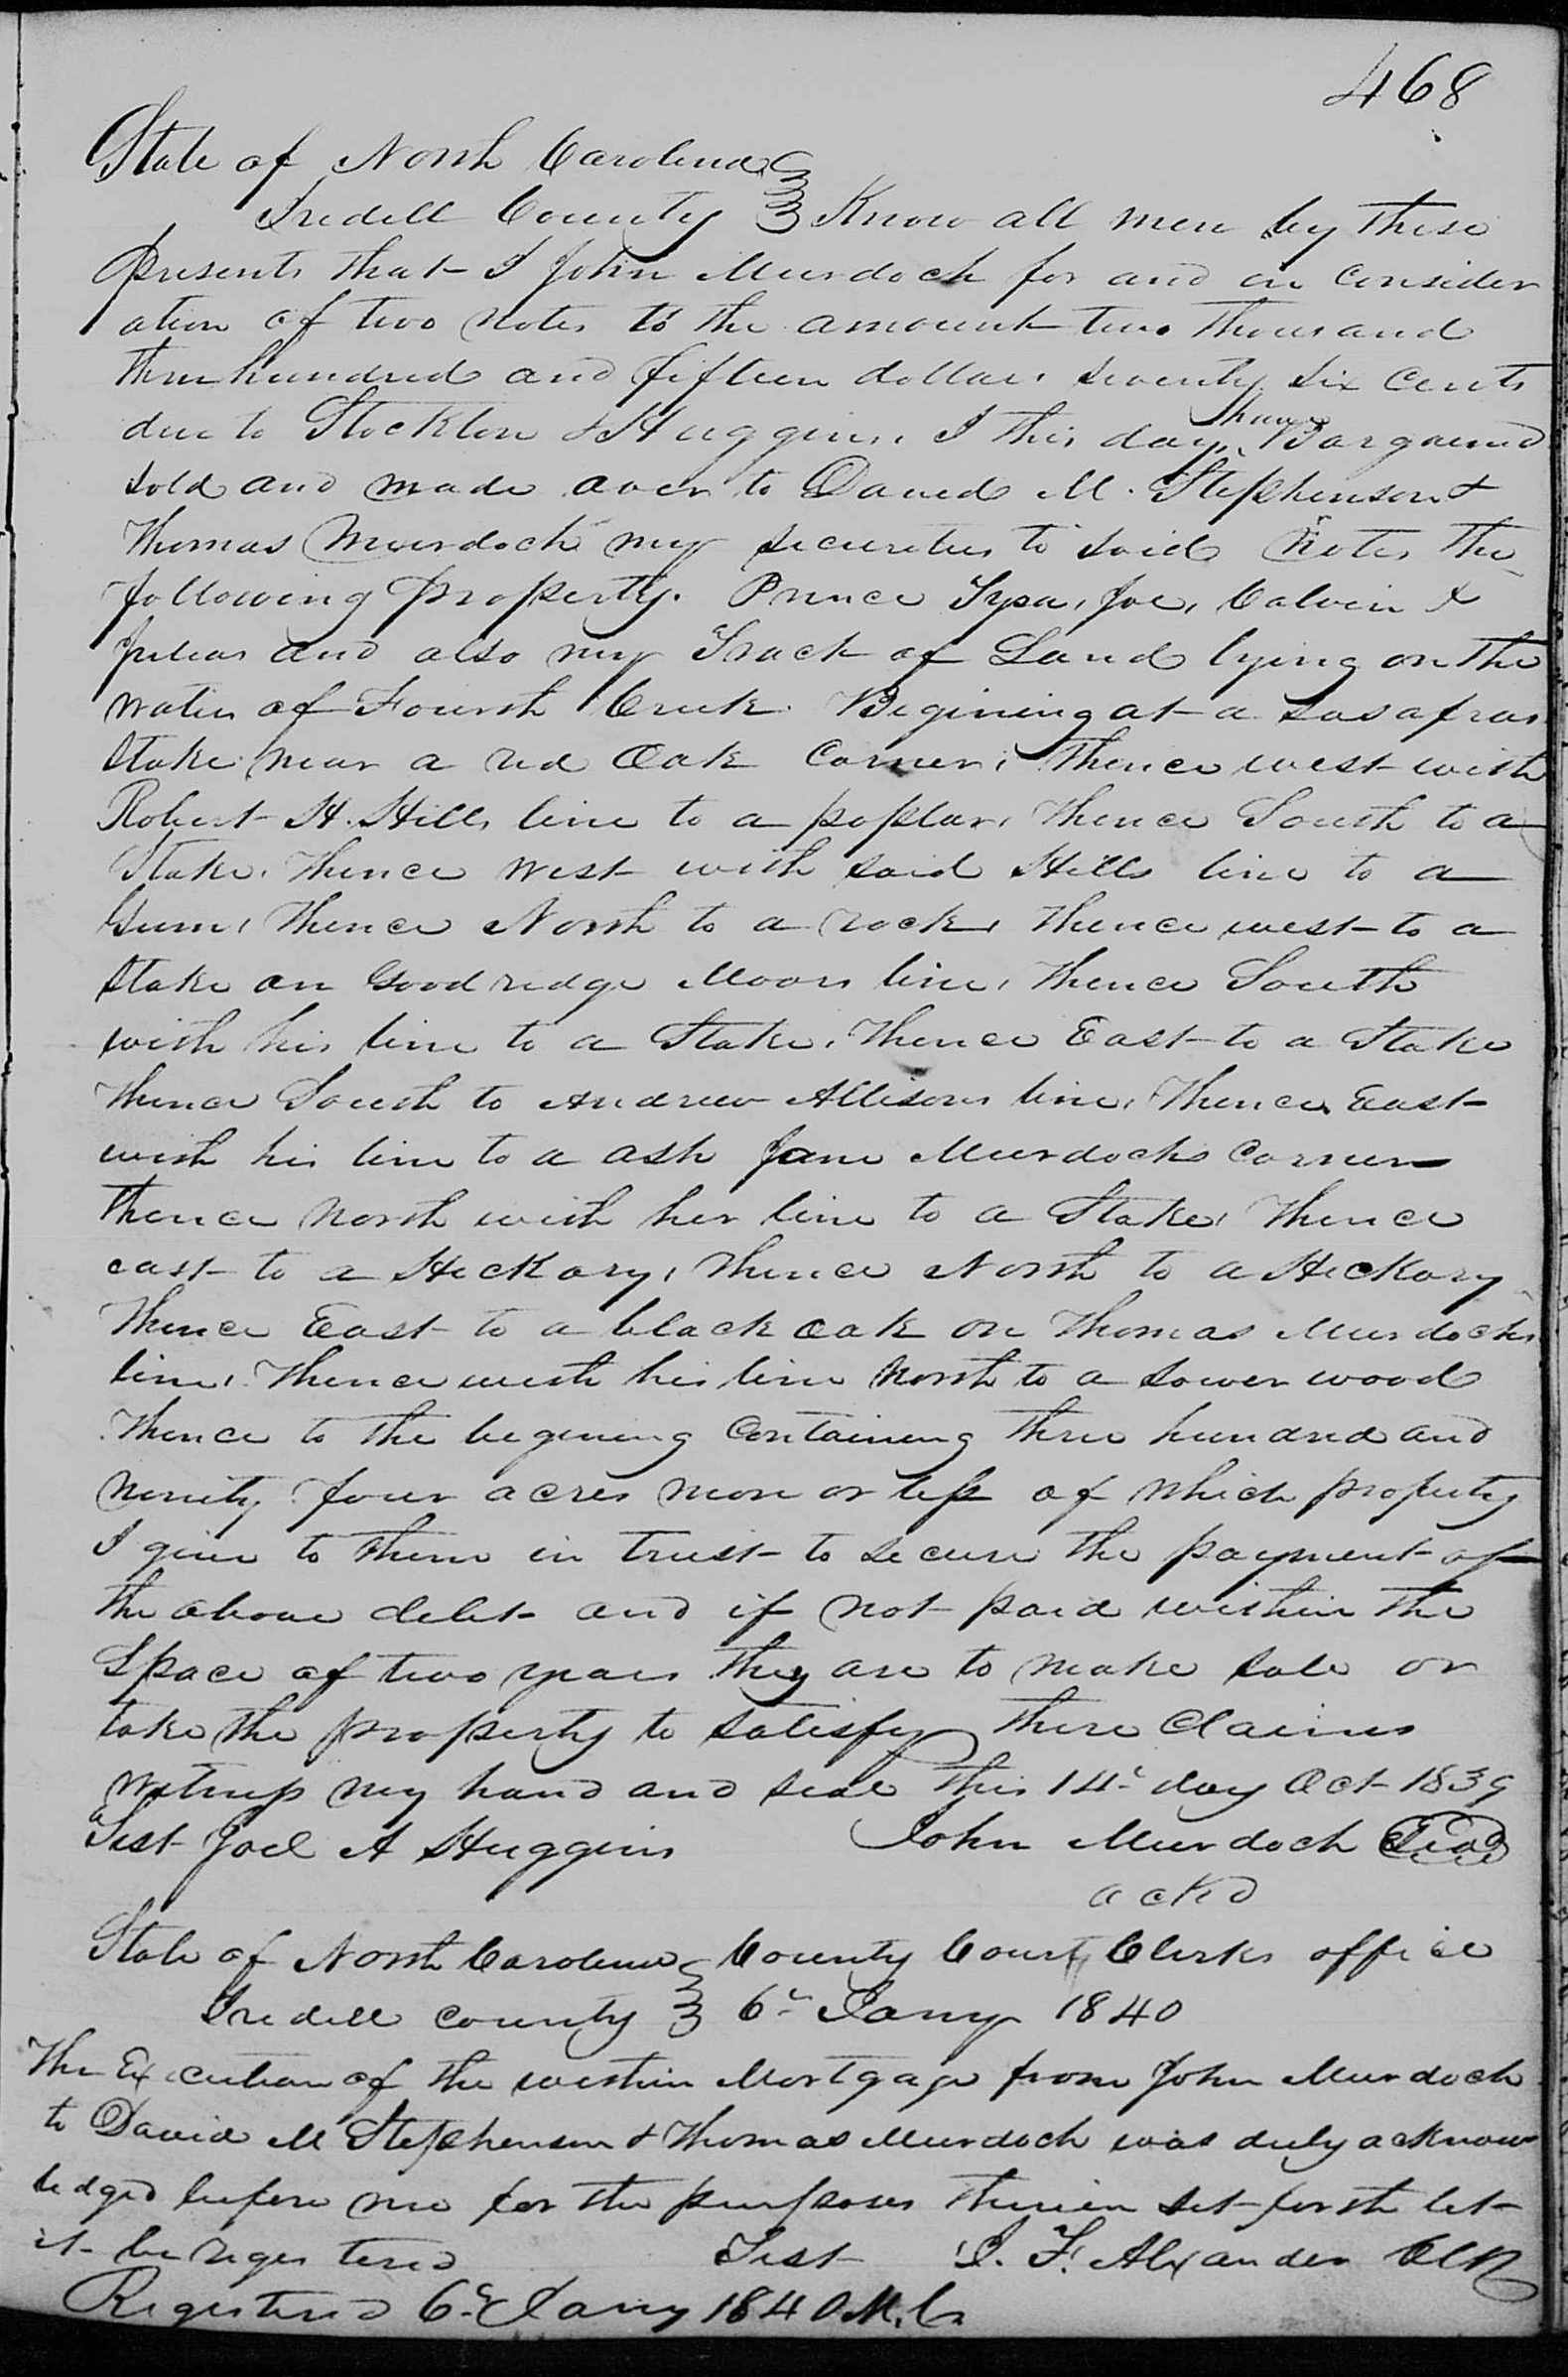 468
State of North Carolina
Iredell County Know all men by these
presents that I John Murdoch for and in consider
ation of two notes to the amount two thousand
three hundred and fifteen dollars seventy six Cents
due to Stockton & Huggins. I this day have Bargained
sold and made over to David M. Stephenson &
Thomas Murdoch my securities to said notes the
following property. Prince Joe, Calvin &
Julias and also my Track of Land lying on the
waters of Fourth Creek. Begining at a Sasafras
Stake near a red Oak Corner, Thence west with
Robert H. Hills line to a poplar, Thence South to a
Stake. Thence West with said Hills line to a
Gum, Thence North to a rock, Thence west to a
Stake on Goodredge Moors line, Thence South
with his line to a Stake. Thence East to a Stake
Thence South to Andrew Allisons line, Thence East
with his line to a ash Jane Murdochs Corner
Thence North with her line to a Stake, Thence
east to a Hickory, Thence North to a Hickory
Thence East to a black oak on Thomas Murdochs
line, Thence with his line North to a sower wood
Thence to the begining Containing three hundred and
ninety four acres more or less of which property
I give to them in trust to secure the payment of
the above debt and if not paid within the
Space of two years they are to make sale or
take the property to satisfy there Claims
Witness my hand and seal this 14th day Oct 1839
Test Joel A Huggins John Murdoch Seal
ackd
State of North Carolina County Court Clerks office
Iredell County 6th Jany 1840
The Execution of the within Mortgage from John Murdoch
to David M Stephenson & Thomas Murdoch was duly acknow
ledged before me for the purposes therein set forth let
it be registered Test J. F. Alexander Clk
Registered 6th Jany 1840